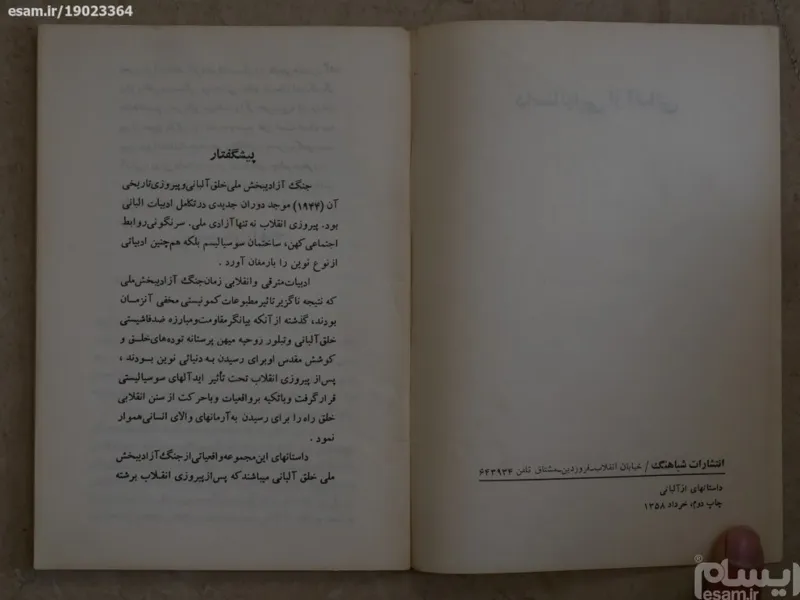 esam.ir/19023364
انتشارات شباهنگ / خیابان انقلاب-فروردین-مشتاق تلفن ۶۴۳۹۳۴
داستانهای ازآلبانی
چاپ دوم، خرداد ۱۳۵۸
پیشگفتار
جنگ آزادیبخش ملی خلق آلبانی و پیروزی تاریخی
آن (۱۹۴۴) موجد دوران جدیدی درتکامل ادبیات البانی
بود. پیروزی انقلاب نه تنها آزادی ملی. سرنگونی روابط
اجتماعی کهن، ساختمان سوسیالیسم بلکه هم‌چنین ادبیاتی
ازنوع نوین را بارمغان آورد .
ادبیات مترقی وانقلابی زمان جنگ آزادیبخش ملی
که نتیجه ناگزیر تاثیر مطبوعات کمونیستی مخفی آنزمان
بودند، گذشته از آنکه بیانگر مقاومت و مبارزه ضدفاشیستی
خلق آلبانی وتبلور روحیه میهن پرستانه توده‌های خلق و
کوشش مقدس اوبرای رسیدن به دنیائی نوین بودند ،
پس از پیروزی انقلاب تحت تأثیر ایدآلهای سوسیالیستی
قرارگرفت وباتکیه برواقعیات وباحرکت از سنن انقلابی
خلق راه را برای رسیدن به آرمانهای والای انسانی هموار
نمود .
داستانهای این مجموعه واقعیاتی ازجنگ آزادیبخش
ملی خلق آلبانی میباشند که پس ازپیروزی انقلاب برشته
ایسام
esam.ir